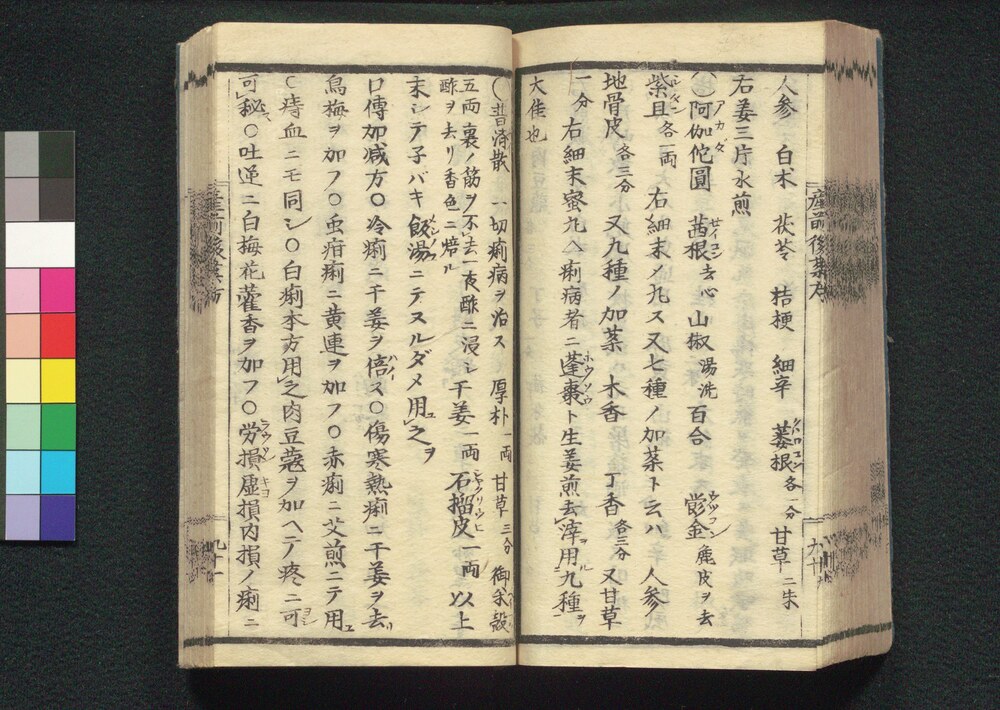 人参 白朮 茯苓 桔梗 細辛 葛根各一分 甘草二朱
右姜三片水煎
○阿伽佗圓 茜根去心 山椒湯洗 百合 欝金麁皮ヲ去
紫且各一両 右細末メ九ス又七種ノ加菜ト云ハ 人参
地骨皮各三分 又九種ノ加菜 木香 丁香各三分 又甘草
一分 右細末蜜丸へ痢病者ニ蓬棗ト生姜煎去滓用九種
大佳也
○普済散 一切痢病ヲ治ス 厚朴一両 甘草三分 御米殻
五両裏ノ筋ヲ不去一夜酢ニ浸シ
酢ヲ去リ香色ニ焙ル 干姜一両 石榴皮一両 以上
末シテ子バキ飯湯ニテスルダメ用之ヲ
口傳加減方○冷痢ニ干姜ヲ倍ス○傷寒熱痢ニ干姜ヲ去
烏梅ヲ加フ○虫疳痢ニ黄連ヲ加フ○赤痢ニ艾煎ニテ用
○痔血ニモ同シ○白痢本方用之肉豆蔲ヲ加ヘテ疼ニ可
可秘○吐逆ニ白梅花藿香ヲ加フ○労損虚損内損ノ痢ニ
九十一